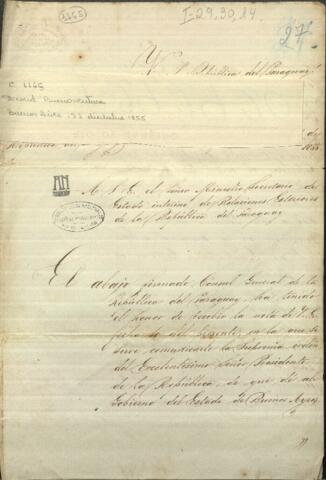 1165
I-29,30,14
27
V. República del Paraguay
C. 1165
Buenos Aires, 23 diciembre 1855
AN
A S. E. el Señor Ministro Secretario de
Estado interino de Relaciones Exteriores
de la República del Paraguay
El abajo firmado, Consul General de la
República del Paraguay, ha tenido
el honor de recibir la nota de V. E.
fecha 4 del corriente, en la que se
sirve comunicarle la Suprema orden
del Excelentísimo Señor Presidente
de la República, de que de al
Gobierno del Estado de Buenos Ayres